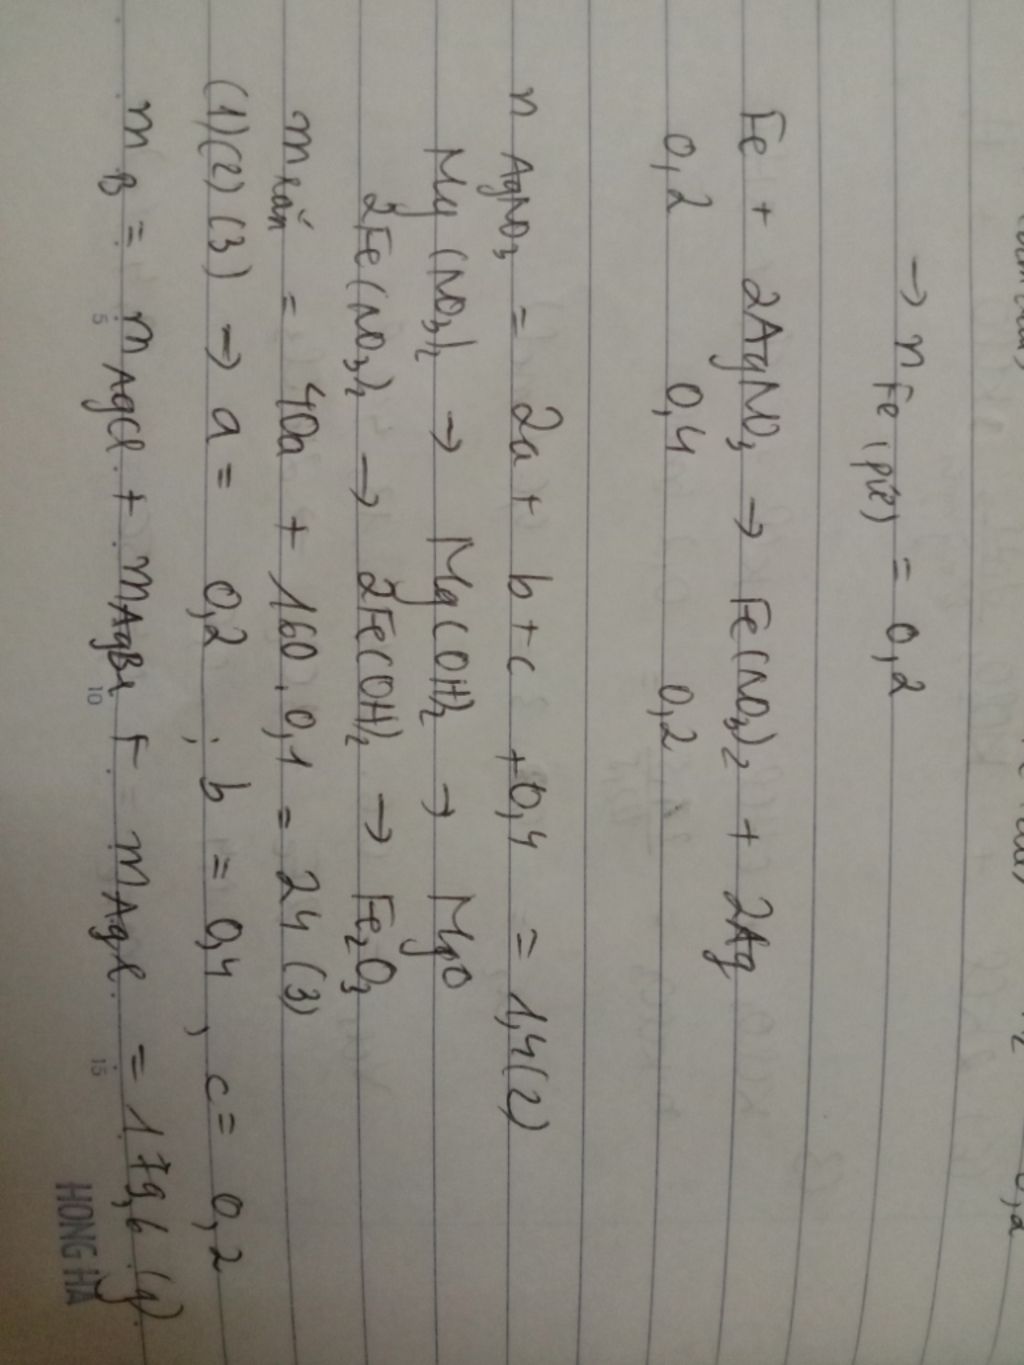 → n Fe (pứ) = 0,2
Fe + 2AgNO₃ → Fe(NO₃)₂ + 2Ag
0,2 0,4 0,2
n AgNO₃ = 2a + b + c + 0,4 = 1,4 (2)
Mg(NO₃)₂ → Mg(OH)₂ → MgO
2Fe(NO₃)₂ → 2Fe(OH)₂ → Fe₂O₃
m rắn = 40a + 160.0,1 = 24 (3)
(1)(2)(3) → a = 0,2 ; b = 0,4 , c = 0,2
m B = m AgCl + m AgBr + m AgI = 179,6 (g)
5 10 15
HONG HA